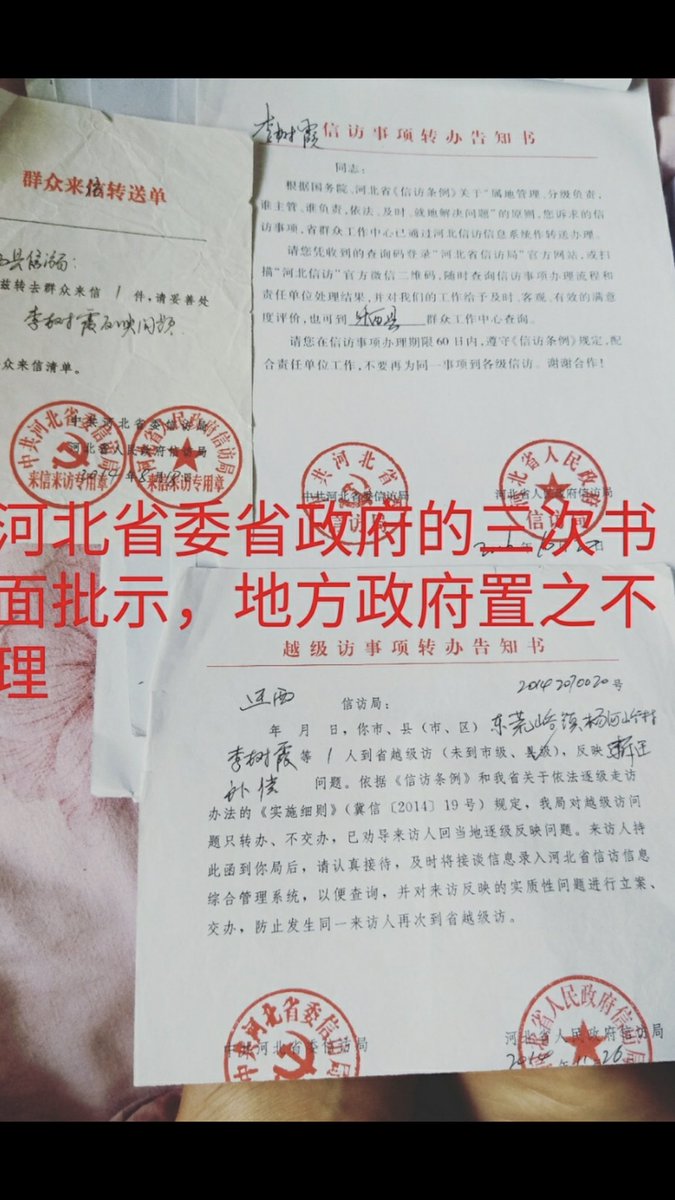 群众来信转送单
县信访局:
兹转去群众来信 1 件,请妥善处
李树霞反映问题
众来信清单。
中共河北省委信访局
河北省人民政府信访局
中共河北省委信访局
来信来访专用章
河北省人民政府信访局
来信来访专用章
李树霞 信访事项转办告知书
同志:
根据国务院、河北省《信访条例》关于"属地管理、分级负责,
谁主管、谁负责,依法、及时、就地解决问题"的原则,您诉求的信
访事项,省群众工作中心已通过河北信访信息系统作转送办理。
请您凭收到的查询码登录"河北省信访局"官方网站,或扫
描"河北信访"官方微信二维码,随时查询信访事项办理流程和
责任单位处理结果,并对我们的工作给予及时、客观、有效的满意
度评价,也可到 县 群众工作中心查询。
请您在信访事项办理期限60日内,遵守《信访条例》规定,配
合责任单位工作,不要再为同一事项到各级信访。谢谢合作!
中共河北省委信访局
河北省人民政府信访局
河北省委省政府的三次书
面批示,地方政府置之不
理
越级访事项转办告知书
20142070020号
迁西 信访局:
年 月 日,你市、县(市、区)东荒峪镇杨
李树霞等 1 人到省越级访(未到市级、县级),反映拆迁
补偿 问题。依据《信访条例》和我省关于依法逐级走访
办法的《实施细则》(冀信〔2014〕19号)规定,我局对越级访问
题只转办、不交办,已劝导来访人回当地逐级反映问题。来访人持
此函到你局后,请认真接待,及时将接谈信息录入河北省信访信息
综合管理系统,以便查询,并对来访反映的实质性问题进行立案、
交办,防止发生同一来访人再次到省越级访。
中共河北省委信访局
河北省人民政府信访局
2014年11月26